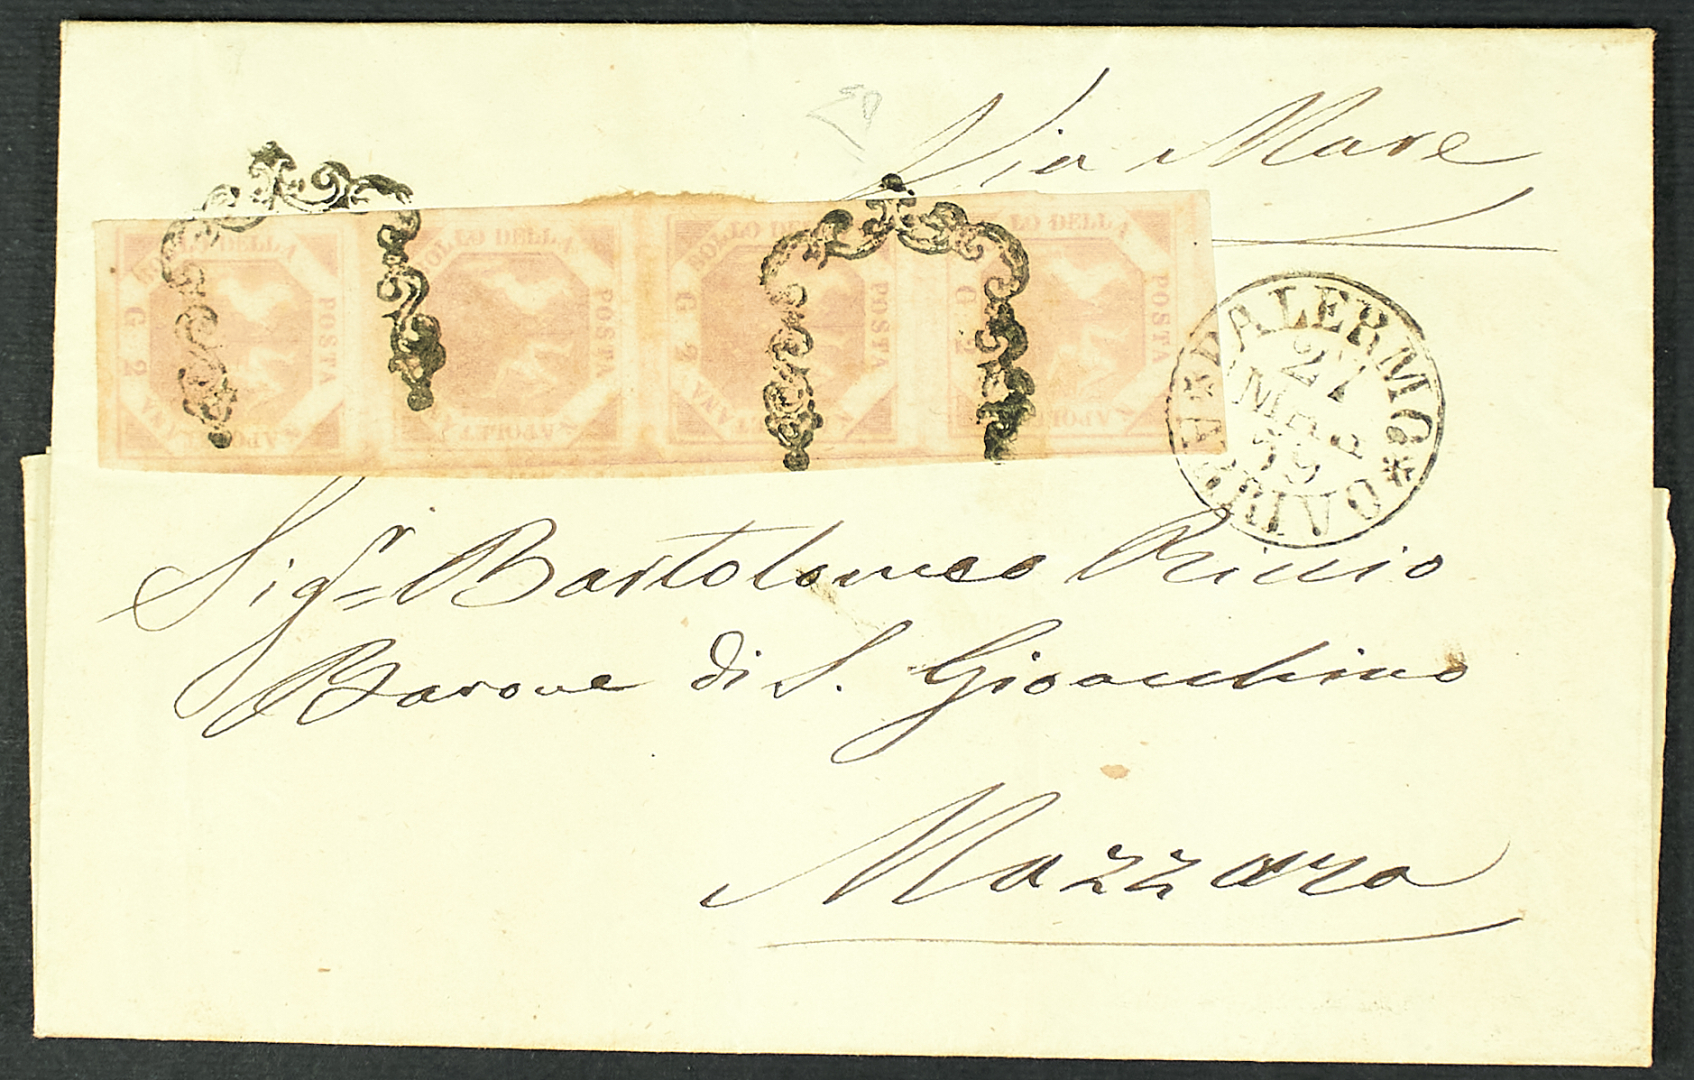 Via Mare
BOLLO DELLA
POSTA
NAPOLETANA
G. 2
BOLLO DELLA
POSTA
NAPOLETANA
BOLLO DELLA
POSTA
NAPOLETANA
G 2
BOLLO DELLA
POSTA
NAPOLETANA
G 2
PALERMO
27
59
Sigr Bartolomeo
Barone di S. Gioacchino
Mazzara